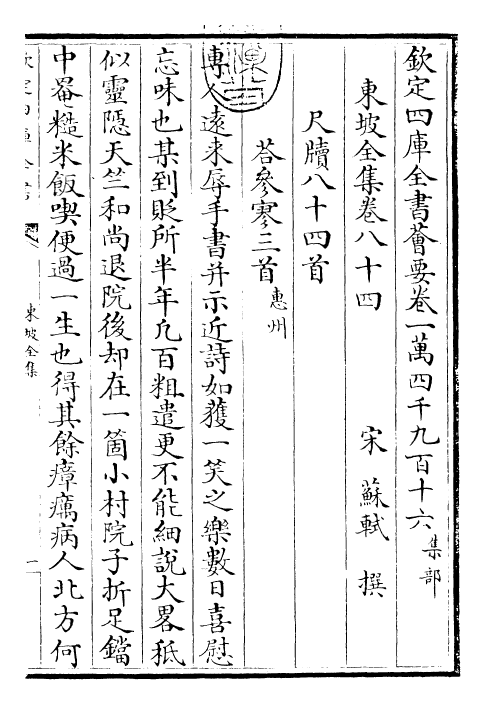 欽定四庫全書薈要卷一萬四千九百十六集部
東坡全集卷八十四
宋 蘇軾 撰
尺牘八十四首
荅參寥三首惠州
專人遠來辱手書并示近詩如獲一笑之樂數日喜慰
忘味也某到貶所半年凢百粗遣更不能細說大畧秪
似靈隱天竺和尚退院後却在一箇小村院子折足鐺
中罨糙米飯喫便過一生也得其餘瘴癘病人北方何
東坡全集
一